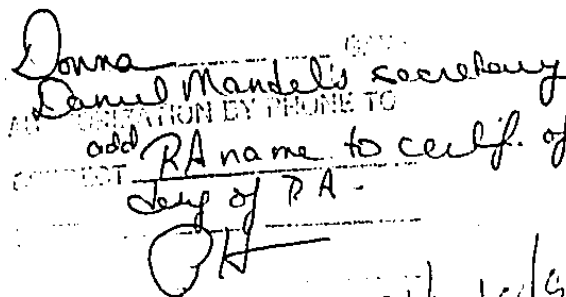 Donna
Daniel Mandel's secretary
AUTHORIZATION BY PHONE TO
add RA name to certif. of
desg of RA -
PH